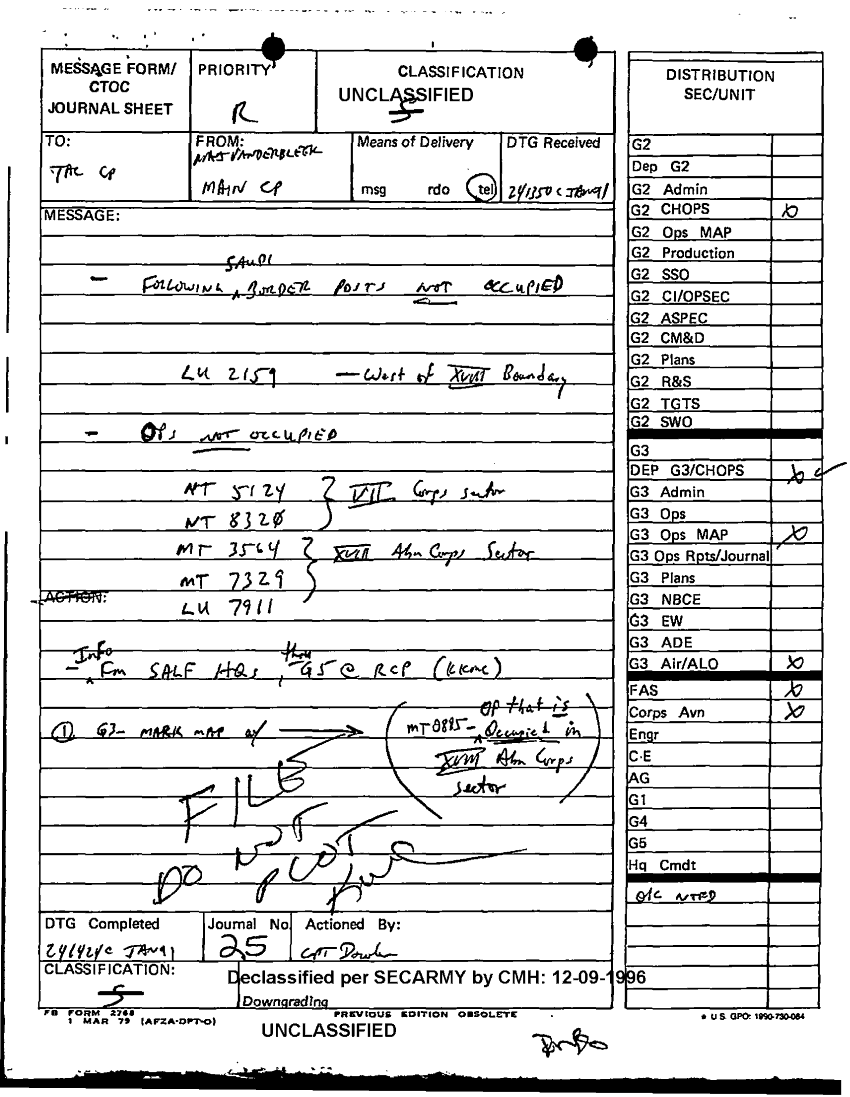 MESSAGE FORM/
CTOC
JOURNAL SHEET
PRIORITY
R
CLASSIFICATION
UNCLASSIFIED
S
TO:
TAC CP
FROM:
MAJ VANDERBLEEK
MAIN CP
Means of Delivery
msg rdo tel
DTG Received
241350C JAN91
MESSAGE:
SAUDI
- FOLLOWING ^ BORDER POSTS NOT OCCUPIED
LU 2159 — West of XVIII Boundary
- OPs NOT OCCUPIED
NT 5124 } VII Corps sector
NT 8320
MT 3564 } XVIII Abn Corps Sector
MT 7329
ACTION:
LU 7911
Info thru
- ^ Fm SALF HQs, ^ G5 @ RCP (KKMC)
① G3- MARK MAP w/ →
OP that is
(MT 0885 - ^ Occupied in
XVIII Abn Corps
sector)
FILE
DO NOT
PLOT
DTG Completed
241424C JAN91
Journal No.
25
Actioned By:
CPT
CLASSIFICATION:
S
Declassified per SECARMY by CMH: 12-09-1996
Downgrading
FB FORM 2768
1 MAR 79 (AFZA-DPT-O)
PREVIOUS EDITION OBSOLETE
UNCLASSIFIED
DISTRIBUTION
SEC/UNIT
G2
Dep G2
G2 Admin
G2 CHOPS X
G2 Ops MAP
G2 Production
G2 SSO
G2 CI/OPSEC
G2 ASPEC
G2 CM&D
G2 Plans
G2 R&S
G2 TGTS
G2 SWO
G3
DEP G3/CHOPS X ✓
G3 Admin
G3 Ops
G3 Ops MAP X
G3 Ops Rpts/Journal
G3 Plans
G3 NBCE
G3 EW
G3 ADE
G3 Air/ALO X
FAS X
Corps Avn X
Engr
C-E
AG
G1
G4
G5
Hq Cmdt
O/C NTFD
* U.S. GPO: 1990-730-084